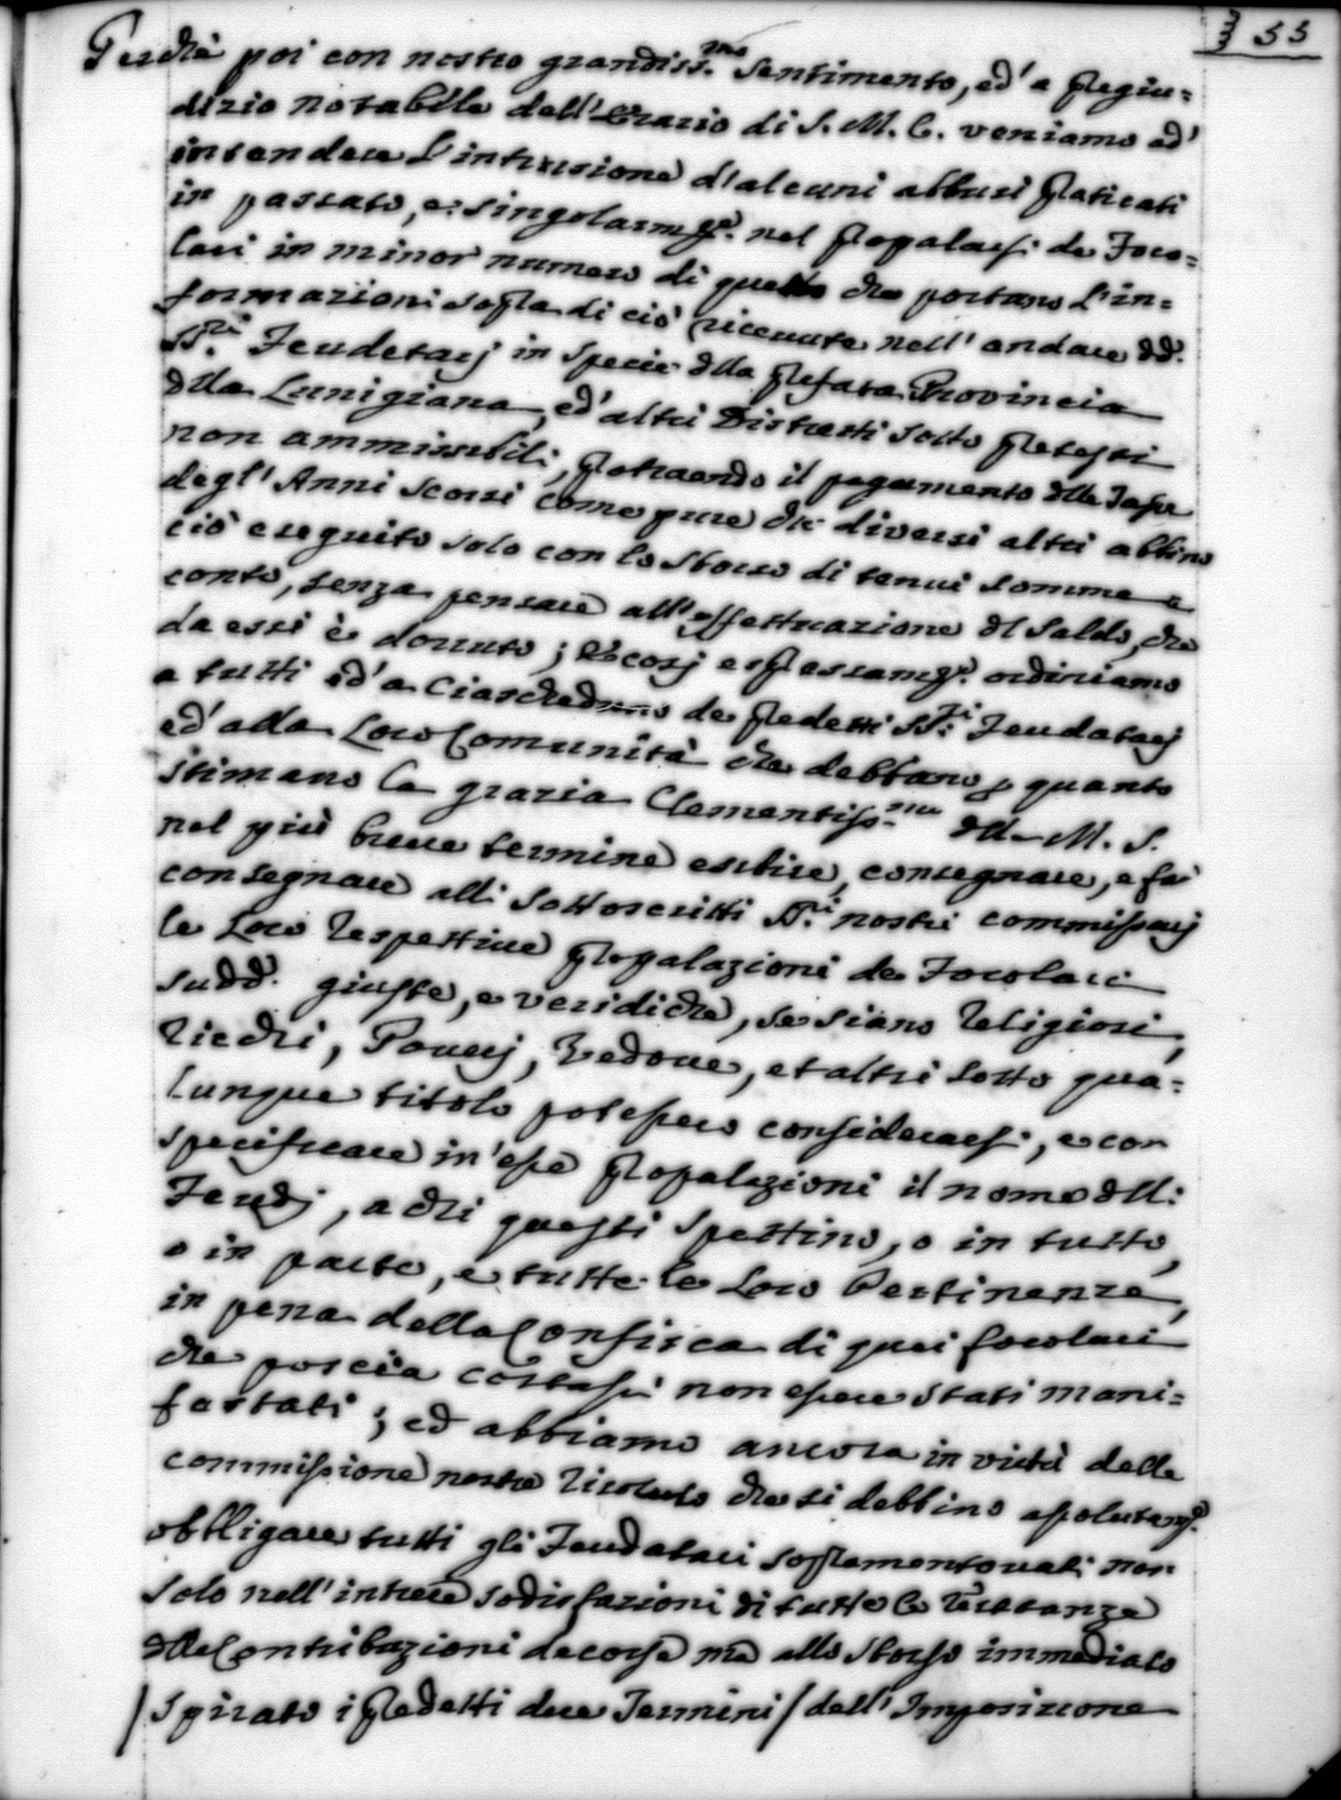 333
Perche poi con nostro grandiss.mo sentimento, ed' a pregiu=
dizio notabile dell'Erario di S. M. C. veniamo ad'
intendere l'intrusione d'alcuni abbusi praticati
in passato, e singolarmte. nel propalarsi de Foco=
lari in minor numero di quello che portano l'in=
formazioni sopra di ciò ricevute nell' andare dd.
SS.ri Feudatarj in specie dlla prefata Provincia
dlla Lunigiana, ed' altri Distretti sotto pretesti
non ammissibili, protraendo il pagamento dlle Tasse
degl' Anni scorsi come pure che diversi altri abbino
ciò eseguito solo con lo sborso di tenui somme a
conto, senza pensare all'effettuazione dl saldo, che
da essi è dovuto; Percosj espressamte. ordiniamo
a tutti ed' a Ciascheduno de predetti SS.ri Feudatarj
ed' alla Loro Comunità che debbano p quanto
stimano la grazia Clementiss.ma dlla M. S.
nel più breve termine esibire, consegnare, e far
consegnare alli sottoscritti SS.ri nostri commissarj
le Loro respettive propalazioni de Focolari
sudd. giuste, e veridiche, se siano Religiosi,
Ricchi, Poverj, Vedove, et altri sotto qua=
lunque titolo potessero considerarsi, e con
specificare in' esse propalazioni il nome dlli
Feudj, a chi questi spettino, o in tutto,
o in parte, e tutte le Loro Pertinenze,
in pena della Confisca di quei focolari
che poscia costassi non essere stati mani=
festati; ed abbiamo ancora in virtù della
commissione nostra risoluto che si debbino assolutamte.
obbligare tutti gli Feudatari sopramentovati non
solo nell' intiera sodisfazioni di tutte le restanze
dlle Contribuzioni decorse ma allo sborso immediato
/ spirato i predetti due Termini / dell' Imposizione